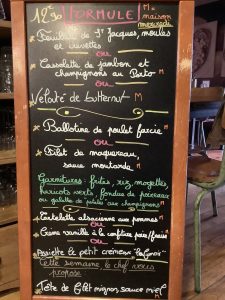 12€50 FORMULE M = maison
mercredi
Feuilleté de St Jacques, moules
et crevettes
ou
Cassolette de jambon et
champignons au Porto M
ou
Velouté de butternut M
Ballotine de poulet farcie M
ou
Filet de maquereau,
sauce moutarde M
Garnitures: frites, riz, mogettes,
haricots verts, fondue de poireaux
ou galette de patates aux champignons
Tartelette alsacienne aux pommes M
ou
Crème vanille à la confiture
ou
Assiette le petit crémeux
Cette semaine, le chef vous
propose
Tête de filet mignon, sauce miel